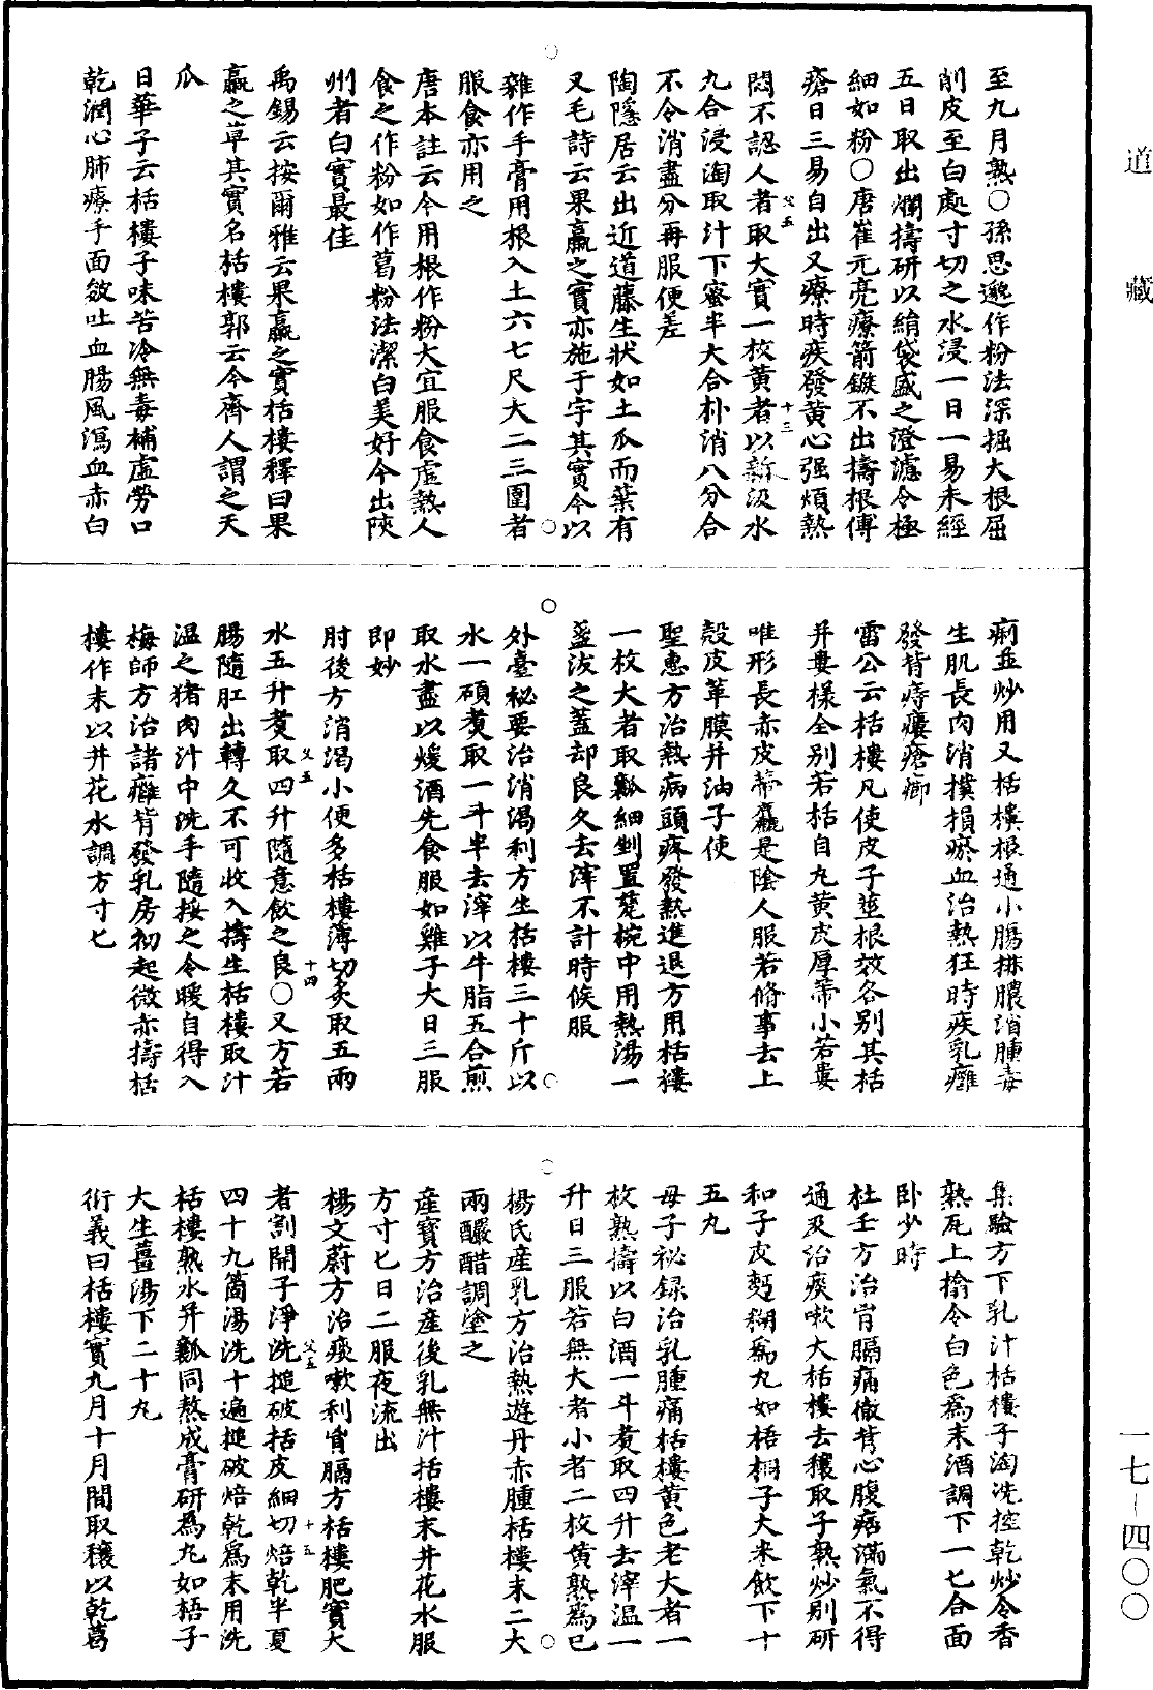 至九月熟○孫思邈作粉法深掘大根屈
削皮至白處寸切之水浸一日一易未經
五日取出爛擣研以絹袋盛之澄濾令極
細如粉○唐崔元亮療箭鏃不出擣根傅
瘡日三易自出又療時疾發黃心强煩熱
悶不認人者取大實一枚黃者以新汲水
九合浸淘取汁下蜜半大合朴消八分合
不令消盡分再服便差
陶隱居云出近道藤生狀如土瓜而葉有
叉毛詩云果臝之實亦施于宇其實今以
雜作手膏用根入土六七尺大二三圍者
服食亦用之
唐本註云今用根作粉大宜服食虛熱人
食之作粉如作葛粉法潔白美好今出陝
州者白實最佳
禹錫云按爾雅云果臝之實栝樓釋曰果
臝之草其實名栝樓郭云今齊人謂之天
瓜
日華子云栝樓子味苦冷無毒補虛勞口
乾潤心肺療手面皴吐血腸風瀉血赤白
痢並炒用又栝樓根通小腸排膿消腫毒
生肌長肉消撲損瘀血治熱狂時疾乳癰
發背痔瘻瘡癤
雷公云栝樓凡使皮子莖根效各別其栝
并蔞樣全別若栝自九黃皮厚蒂小若蔞
唯形長赤皮蒂麤是陰人服若脩事去上
殼皮革膜并油子使
聖惠方治熱病頭疼發熱進退方用栝樓
一枚大者取瓤細剉置甆椀中用熱湯一
盞沃之蓋却良久去滓不計時候服
外臺祕要治消渴利方生栝樓三十斤以
水一碩煑取一斗半去滓以牛脂五合煎
取水盡以煖酒先食服如雞子大日三服
即妙
肘後方消渴小便多栝樓薄切炙取五兩
水五升煑取四升隨意飲之良○又方若
腸隨肛出轉久不可收入擣生栝樓取汁
溫之猪肉汁中洗手隨挼之令暖自得入
梅師方治諸癰背發乳房初起微赤擣栝
樓作末以井花水調方寸匕
集驗方下乳汁栝樓子淘洗控乾炒令香
熟瓦上搶令白色為末酒調下一匕合面
卧少時
杜壬方治胷膈痛徹背心腹痞滿氣不得
通及治痰嗽大栝樓去穰取子熟炒別研
和子皮麪糊為九如梧桐子大米飲下十
五九
母子祕録治乳腫痛栝樓黃色老大者一
枚熟擣以白酒一斗煑取四升去滓溫一
升日三服若無大者小者二枚黃熟為已
楊氏産乳方治熱遊丹赤腫栝樓末二大
兩釅醋調塗之
産寶方治産後乳無汁括樓末井花水服
方寸匕日二服夜流出
楊文蔚方治痰嗽利胷膈方栝樓肥實大
者割開子淨洗搥破括皮細切焙乾半夏
四十九箇湯洗十遍搥破焙乾為末用洗
栝樓熟水并瓤同熬成膏研為九如梧子
大生薑湯下二十九
衍義曰栝樓實九月十月間取穰以乾葛
父五
十三
父五
十四
父五
十五
道藏
一七-四〇〇